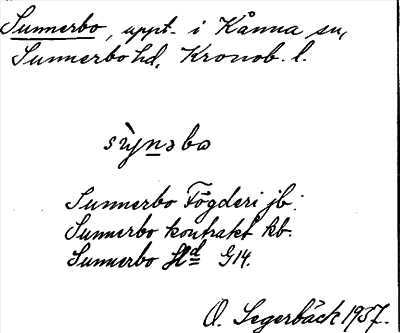 Sunnerbo, uppt. i Kånna sn,
Sunnerbo hd, Kronob. l.
sỳnəbo
Sunnerbo Fögderi jb.
Sunnerbo kontrakt kb.
Sunnerbo Hd G14.
O. Segerbäck 1937.